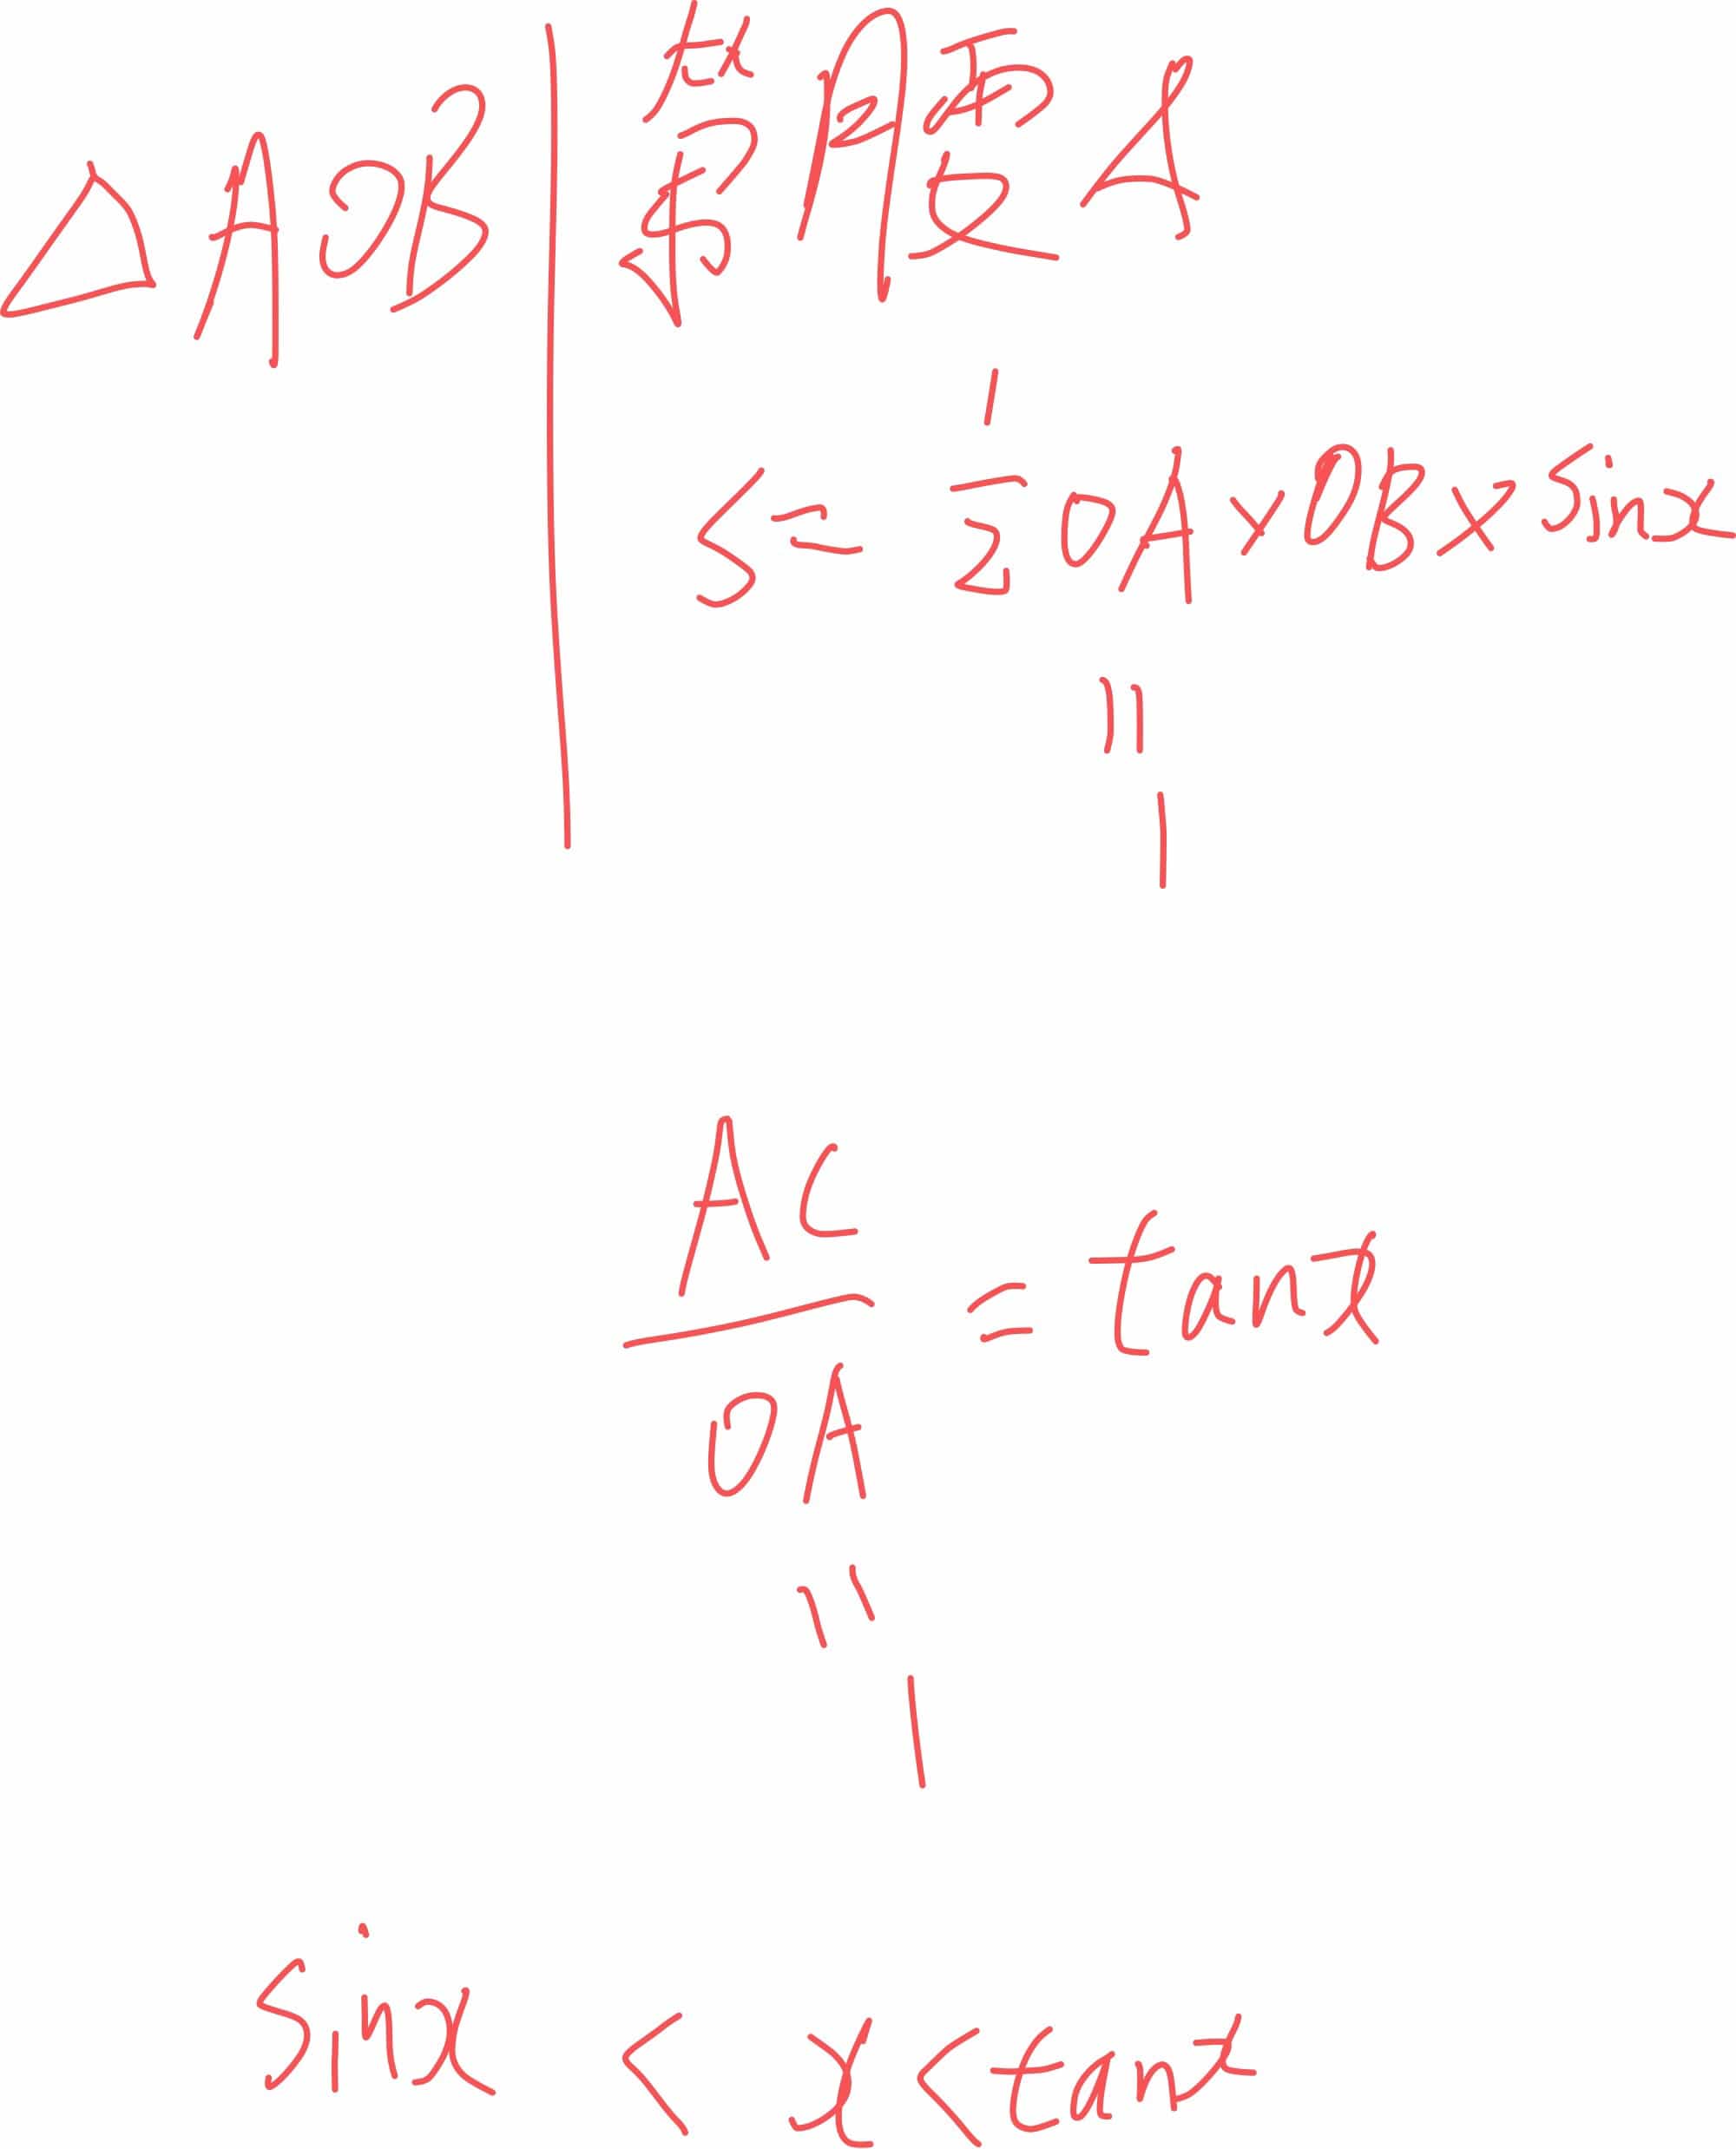 △AOB 等腰△
S = 1/2 OA × OB × sinx
=
1
AC/OA = tanx
=
1
sinx < x < tanx